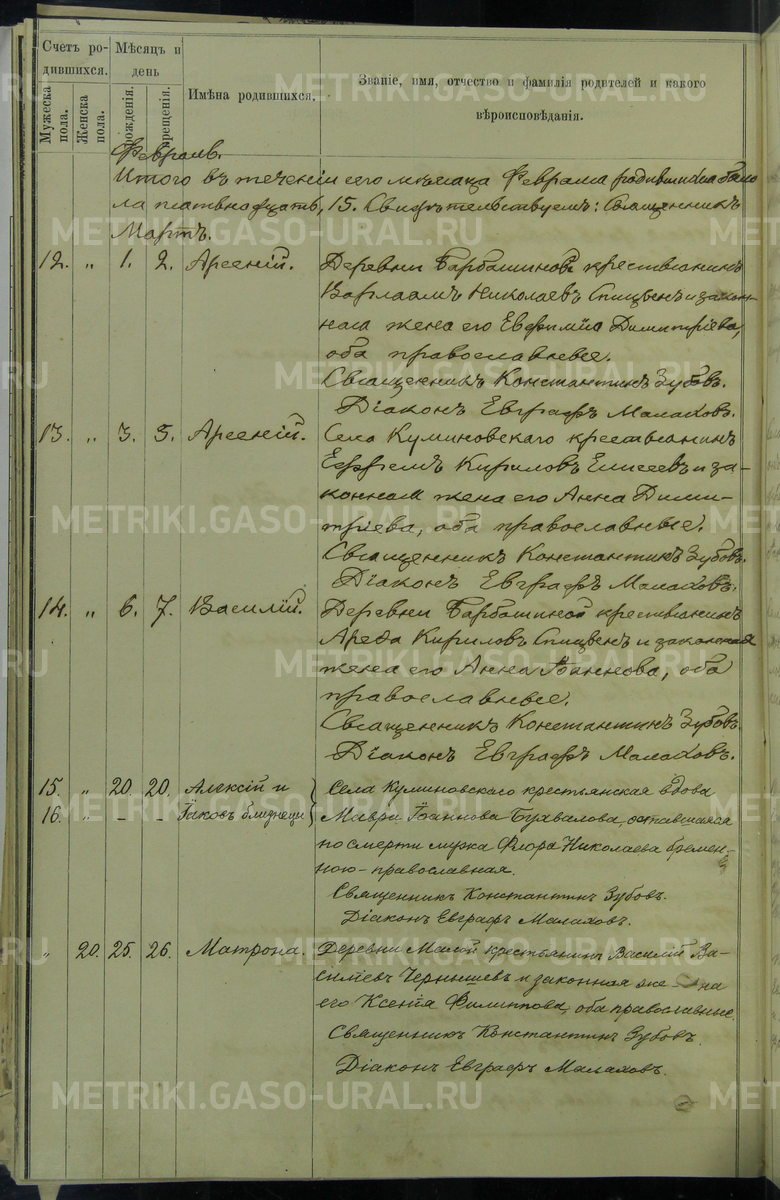 Счетъ ро-
дившихся.
Мѣсяцъ и
день
Имѣна родившихся.
Званіе, имя, отчество и фамилія родителей и какого
вѣроисповѣданія.
Мужеска
пола.
Женска
пола.
рожденія.
крещенія.
Февраль.
Итого въ теченіи сего мѣсяца Февраля родившихся было
пятьнадцать, 15. Свидѣтельствуемъ: Священникъ
Мартъ.
12. „ 1. 2. Арсеній. Деревни Барбашиной крестьянинъ
Варлаамъ Николаевъ Спицынъ и закон-
ная жена его Евфимія Димитріева,
оба православные.
Священникъ Константинъ Зубовъ.
Діаконъ Евграфъ Малаховъ.
13. „ 3. 5. Арсеній. Села Куминовскаго крестьянинъ
Ефремъ Кириловъ Елисеевъ и за-
конная жена его Анна Дими-
тріева, оба православные.
Священникъ Константинъ Зубовъ.
Діаконъ Евграфъ Малаховъ.
14. „ 6. 7. Василій. Деревни Барбашиной крестьянинъ
Кириловъ Спицынъ и законная
жена его Анна Іоаннова, оба
православные.
Священникъ Константинъ Зубовъ.
Діаконъ Евграфъ Малаховъ.
15. „ 20. 20. Алексій и Села Куминовскаго крестьянская вдова
16. „ – – Іаковъ близнецы Мавра Іоаннова Бухвалова, оставшаяся
по смерти мужа Флора Николаева беремен-
ною - православная.
Священникъ Константинъ Зубовъ.
Діаконъ Евграфъ Малаховъ.
„ 20. 25. 26. Матрона. Деревни Малой крестьянинъ Василій Ва-
сильевъ Чернышевъ и законная же-на
его Ксенія Филиппова, оба православные.
Священникъ Константинъ Зубовъ.
Діаконъ Евграфъ Малаховъ.
METRIKI.GASO-URAL.RU